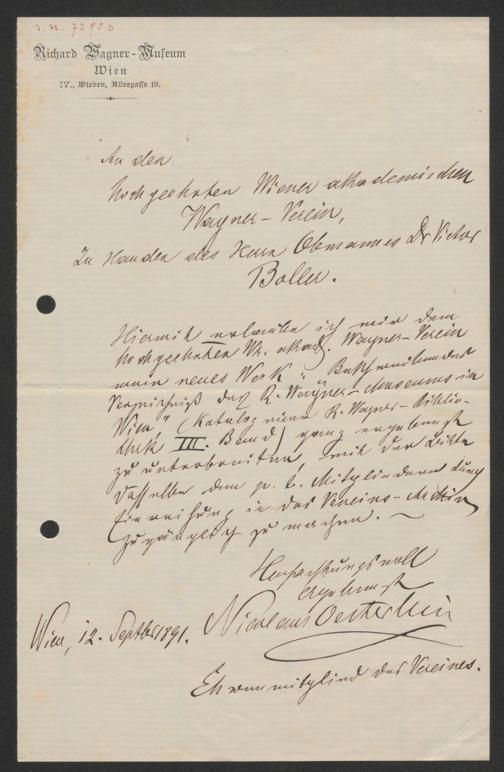 I. N. 72923
Richard Wagner-Museum
Wien
IV., Wieden, Alleegasse 19.
An den
hochgeehrten Wiener akademischen
Wagner-Verein,
Zu Handen des Herrn Obmannes Dr Victor
Boller.
Hiermit erlaube ich mir dem
hochgeehrten Wr. akad. Wagner-Verein
mein neues Werk „Beschreibendes
Verzeichniß des R. Wagner-Museums in
Wien" (Katalog einer R. Wagner-Biblio-
thek III. Band) ganz ergebenst
zu unterbreiten, mit der Bitte
dasselbe den p. t. Mitgliedern durch
Einreihung in das Vereins-Archiv
zugänglich zu machen. —
Hochachtungsvoll
ergebenst
Nicolaus Oesterlein
Wien, 12. Septber 1891.
Ehrenmitglied des Vereines.